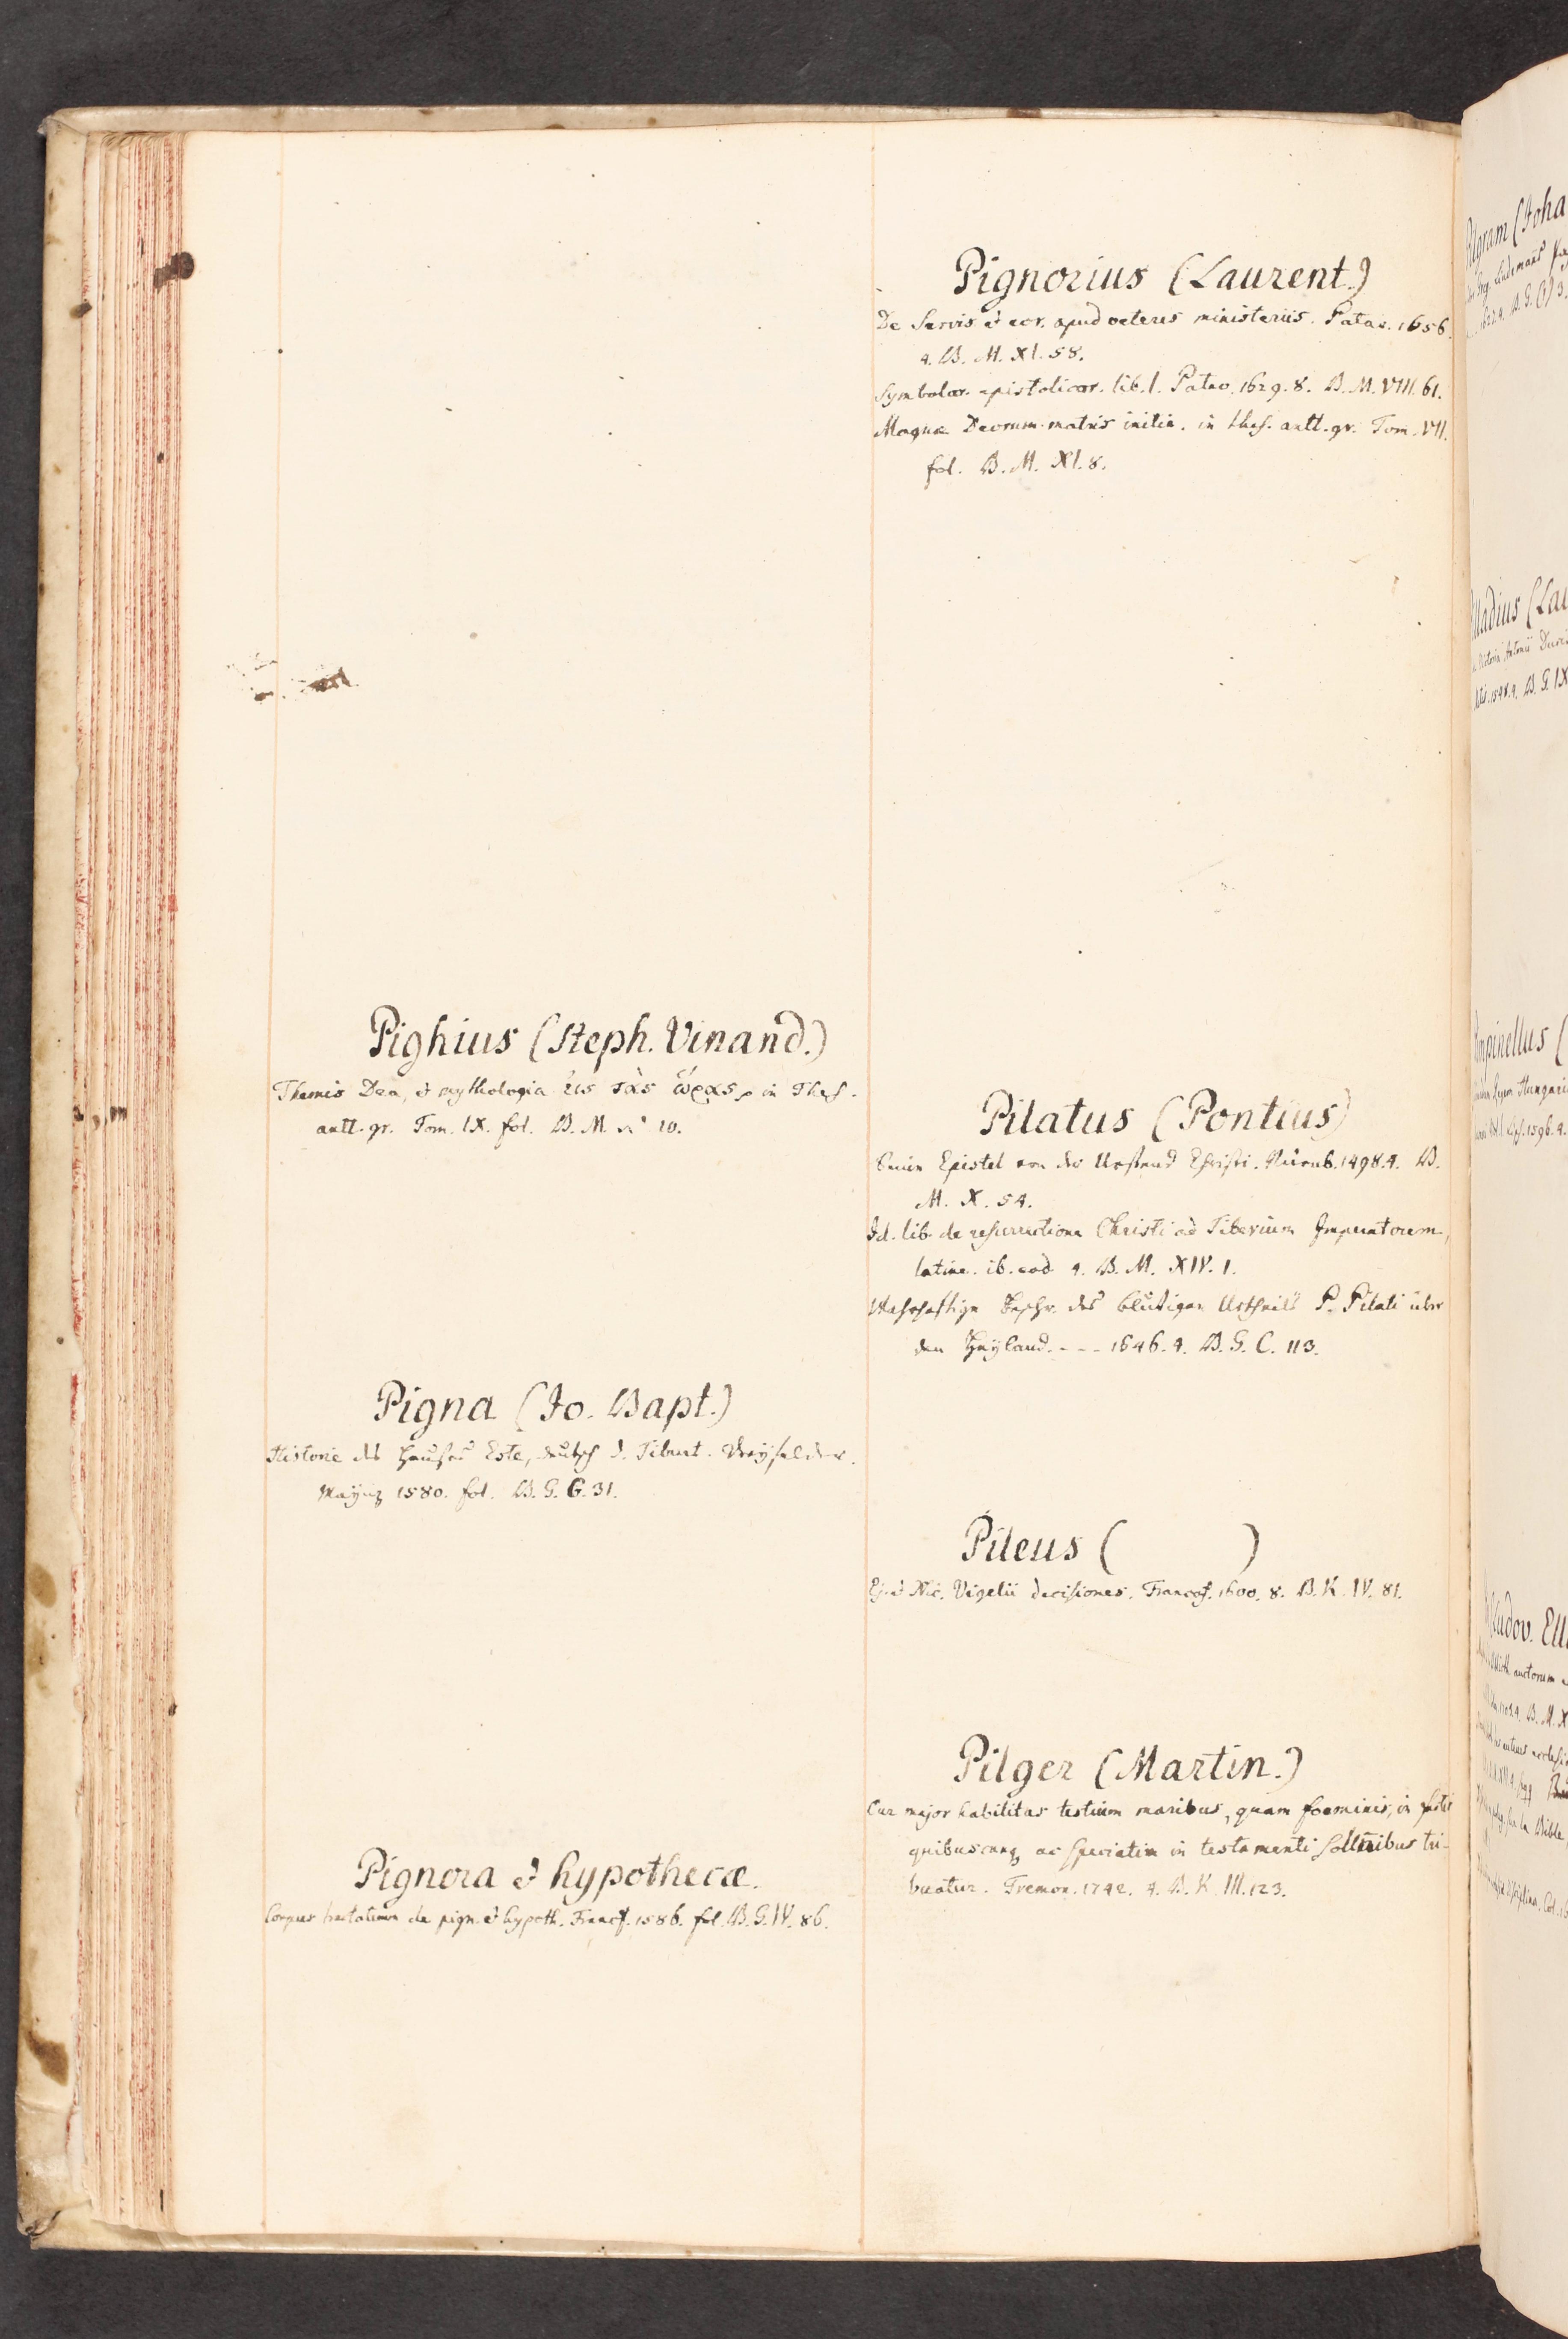 Pighius (Steph. Vinand.)
Themis Dea, & mythologia εις τὰς ὥρας, in Thes.
antt. gr. Tom. IX. fol. B. M. 10.
Pigna (Jo. Bapt.)
Historie des Hauses Este, deutsch d.
Maynz 1580. fol. B. G. G. 31.
Pignora & hypothecæ.
Corpus tractatuum de pign. & hypoth. Francf. 1586. fol. B. G. IV. 86.
Pignorius (Laurent.)
De Servis & eor. apud veteres ministeriis. Patav. 1656.
4. B. M. XI. 58.
Symbolar. epistolicar. lib. I. Patav. 1629. 8. B. M. VIII. 61.
Magnæ Deorum matris initia. in thes. antt. gr. Tom. VII.
fol. B. M. XI. 8.
Pilatus (Pontius)
Epistel von der Urstend Christi. Nürnb. 1498. 4. B.
M. X. 54.
Id. lib. de resurrectione Christi ad Tiberium Imperatorem,
latine. ib. eod. 4. B. M. XIV. 1.
Wahrhaftige Beschr. des blutigen Urtheils P. Pilati über
den Heyland. - - - 1646. 4. B. G. C. 113.
Pileus ( )
Ej. & Nic. Vigelii decisiones. Francof. 1600. 8. B. K. IV. 81.
Pilger (Martin.)
Cur major habilitas testium maribus, quam foeminis, in
quibuscunq ac speciatim in testamenti tri-
buatur. Tremon. 1742. 4. B. K. III. 123.